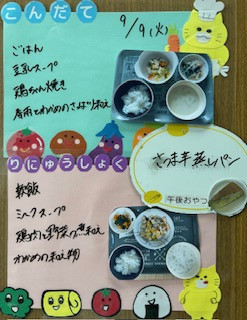 こんだて
9/9(火)
ごはん
豆乳スープ
鶏ちゃん焼き
春雨とわかめのさっぱり和え
りにゅうしょく
さつま芋蒸しパン
午後おやつ
軟飯
ミルクスープ
鶏肉と野菜の煮和え
わかめの和え物